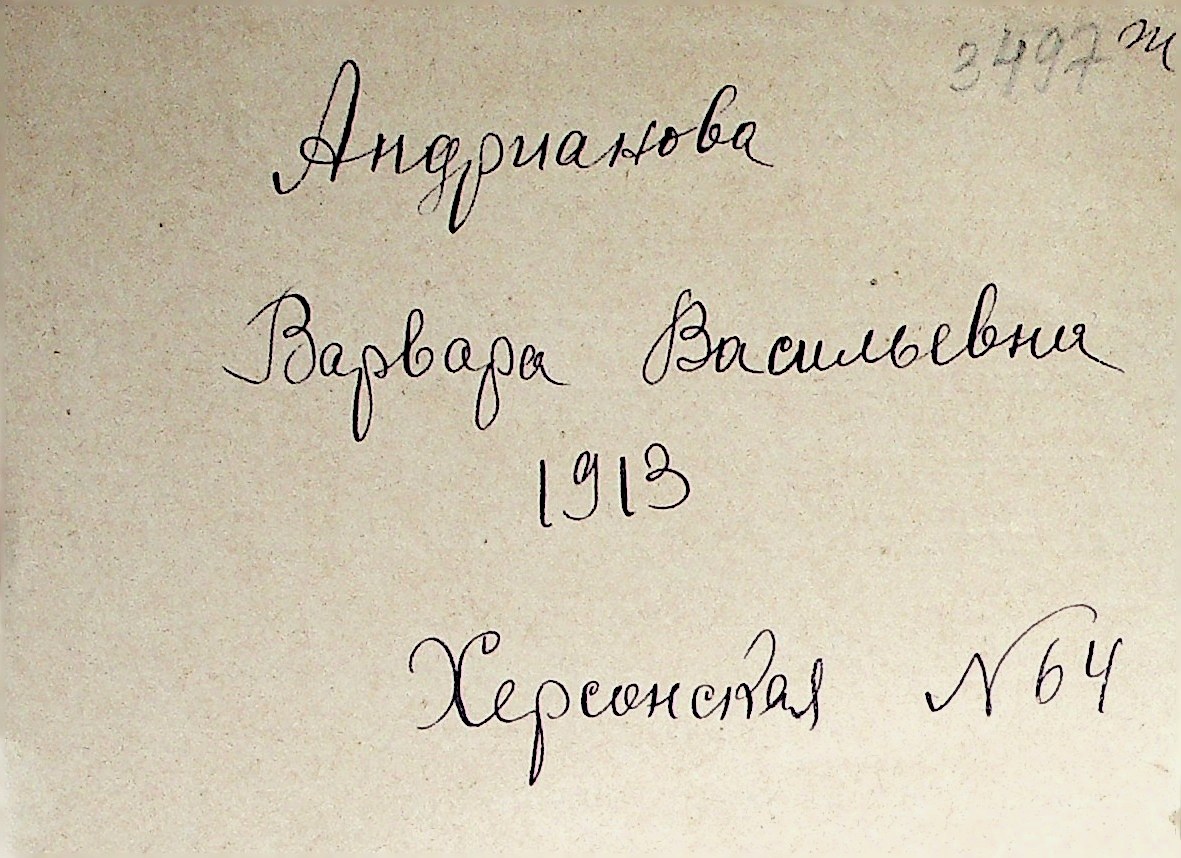 3497 ж
Андрианова
Варвара Васильевна
1913
Херсонская N 64